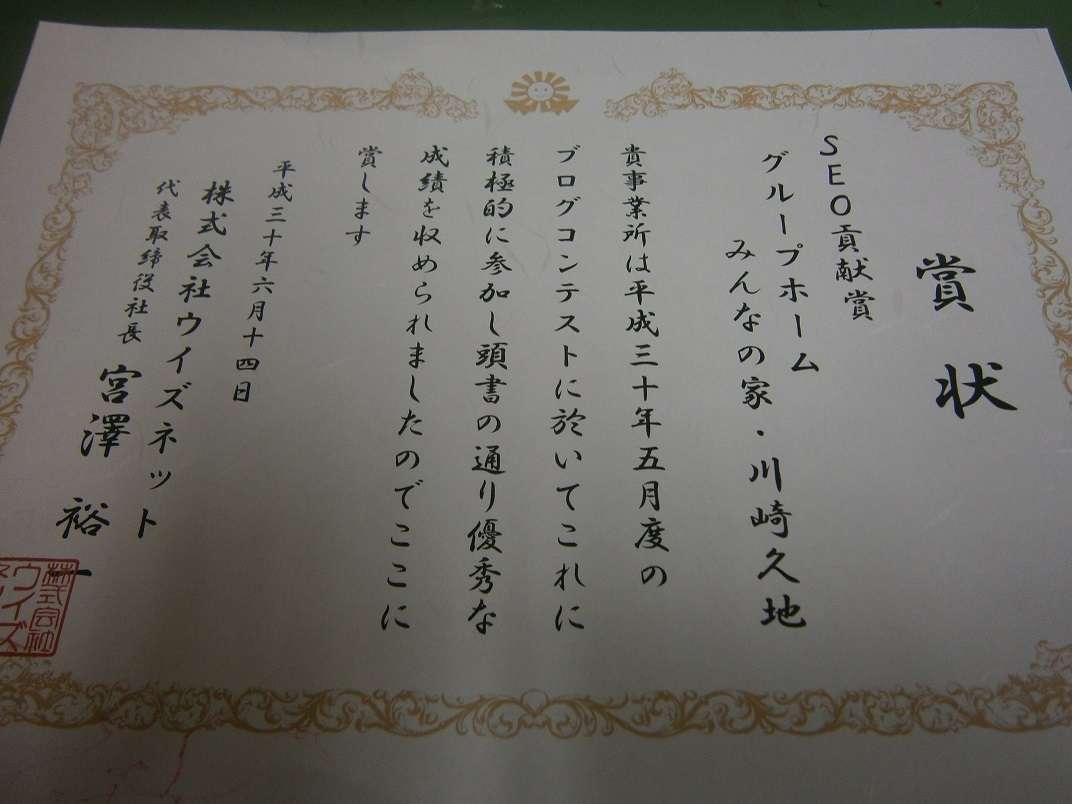 賞状
SEO貢献賞
グループホーム
みんなの家・川崎久地
貴事業所は平成三十年五月度の
ブログコンテストに於いてこれに
積極的に参加し頭書の通り優秀な
成績を収められましたのでここに
賞します
平成三十年六月十四日
株式会社ウイズネット
代表取締役社長
宮澤裕一
株式会社
ウイズ